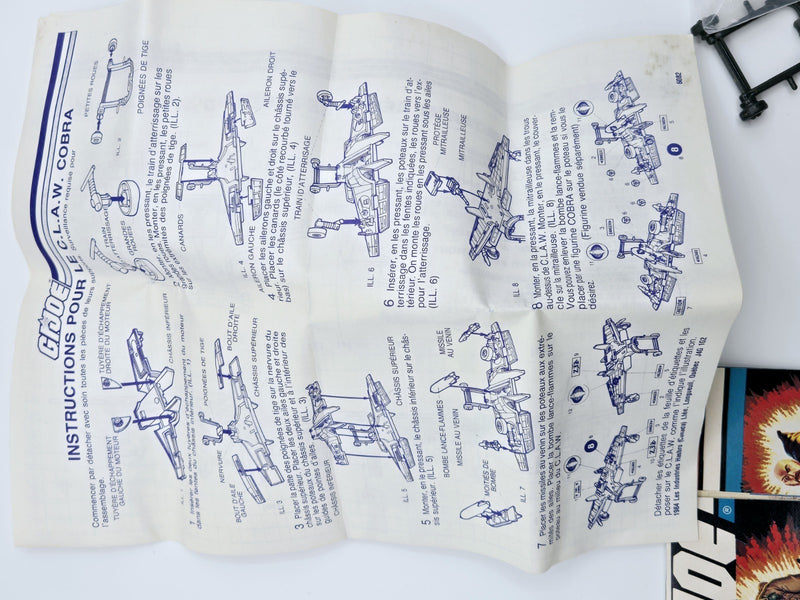 G.I. JOE
INSTRUCTIONS POUR LE C.L.A.W. COBRA
Commencer par détacher avec soin toutes les pièces de leurs
l'assemblage.
TUYÈRE D'ÉCHAPPEMENT
DROITE DU MOTEUR
TUYÈRE D'ÉCHAPPEMENT
GAUCHE DU MOTEUR
CHÂSSIS INFÉRIEUR
PETITES ROUES
POIGNÉES DE TIGE
ILL. 2
GRANDES
ROUES
en les pressant, le train d'atterrissage sur les
Monter, en les pressant, les petites roues
des poignées de tige. (ILL. 2)
POIGNÉES DE TIGE
BOUT D'AILE
DROITE
NERVURE
BOUT D'AILE
GAUCHE
CHÂSSIS SUPÉRIEUR
ILL. 3
3 Placer la patte des poignées de tige sur la nervure du
châssis supérieur. Placer les deux ailes gauche et droite
sur les poteaux du châssis supérieur et à l'intérieur des
guides de pointes d'ailes. (ILL. 3)
CANARDS
AILERON DROIT
ILL. 4
AILERON GAUCHE
4 Placer les ailerons gauche et droit sur le châssis supé-
rieur. Placer les canards (le côté recourbé tourné vers le
bas) sur le châssis supérieur. (ILL. 4)
CHÂSSIS INFÉRIEUR
CHÂSSIS SUPÉRIEUR
ILL. 5
5 Monter, en le pressant, le châssis inférieur sur le châs-
sis supérieur. (ILL. 5)
TRAIN D'ATTERRISAGE
ILL. 6
6 Insérer, en les pressant, les poteaux sur le train d'at-
terrissage dans les fentes indiquées, les roues vers l'ex-
térieur. On monte les roues en les pressant sous les ailes
pour l'atterrissage.
(ILL. 6)
MISSILE
AU VENIN
BOMBE LANCE-FLAMMES
MISSILE AU VENIN
MOITIÉS DE
BOMBE
ILL. 7
7 Placer les missiles au venin sur les poteaux aux extré-
mités des ailes. Placer la bombe lance-flammes sur le
poteau au milieu du C.L.A.W.
PROTÈGE
MITRAILLEUSE
MITRAILLEUSE
ILL. 8
8 Monter, en la pressant, la mitrailleuse dans les trous
au-dessus de C.L.A.W. Monter, en le pressant, le couver-
cle sur la mitrailleuse. (ILL. 8)
Vous pouvez enlever la bombe lance-flammes et la rem-
placer par une figurine COBRA sur le poteau si vous le
désirez. (Figurine vendue séparément)
Détacher les étiquettes de la feuille d'étiquettes et les
poser sur le C.L.A.W. comme l'indique l'illustration.
1984 Les Industries Hasbro (Canada) Ltée, Longueuil, Québec J4G 1G2
6082
JOE
®